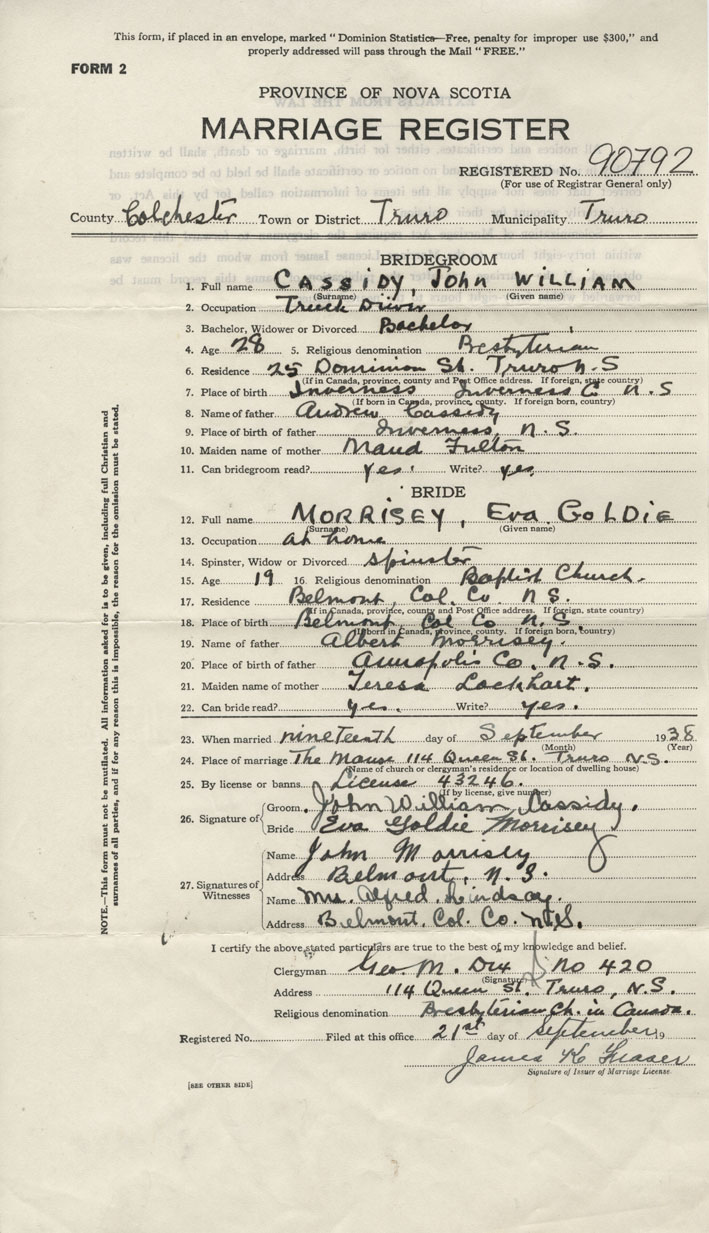 This form, if placed in an envelope, marked "Dominion Statistics—Free, penalty for improper use $300," and
properly addressed will pass through the Mail "FREE."
FORM 2
PROVINCE OF NOVA SCOTIA
MARRIAGE REGISTER
REGISTERED No. 90792
(For use of Registrar General only)
County Colchester Town or District Truro Municipality Truro
BRIDEGROOM
1. Full name CASSIDY, John WILLIAM
(Surname) (Given name)
2. Occupation Truck Driver
3. Bachelor, Widower or Divorced Bachelor
4. Age 28 5. Religious denomination Presbyterian
6. Residence 25 Dominion St. Truro N.S
(If in Canada, province, county and Post Office address. If foreign, state country)
7. Place of birth Inverness Inverness C N.S
(If born in Canada, province, county. If foreign born, country)
8. Name of father Andrew Cassidy
9. Place of birth of father Inverness, N.S.
10. Maiden name of mother Maud Fulton
11. Can bridegroom read? yes. Write? yes
BRIDE
12. Full name MORRISEY, Eva GOLDIE
(Surname) (Given name)
13. Occupation at home
14. Spinster, Widow or Divorced Spinster
15. Age 19 16. Religious denomination Baptist Church.
17. Residence Belmont, Col. Co. N.S.
(If in Canada, province, county and Post Office address. If foreign, state country)
18. Place of birth Belmont, Col Co N.S.
(If born in Canada, province, county. If foreign born, country)
19. Name of father Albert Morrisey.
20. Place of birth of father Annapolis Co. N.S.
21. Maiden name of mother Teresa Lockhart.
22. Can bride read? yes. Write? yes.
23. When married nineteenth day of September 1938
(Month) (Year)
24. Place of marriage The Manse 114 Queen St. Truro N.S.
(Name of church or clergyman's residence or location of dwelling house)
25. By license or banns License 43246.
(If by license, give number)
26. Signature of Groom John William Cassidy.
Bride Eva Goldie Morrisey
27. Signatures of Witnesses Name John Morrisey
Address Belmont, N.S.
Name Mrs. Alfred Lindsay.
Address Belmont, Col. Co. N.S.
I certify the above stated particulars are true to the best of my knowledge and belief.
Clergyman Geo M. No 420
(Signature)
Address 114 Queen St. Truro, N.S.
Religious denomination Presbyterian Ch. in Canada.
Registered No. Filed at this office 21st day of September 19
James K Fraser
Signature of Issuer of Marriage License
[SEE OTHER SIDE]
NOTE.—This form must not be mutilated. All information asked for is to be given, including full Christian and
surnames of all parties, and if for any reason this is impossible, the reason for the omission must be stated.